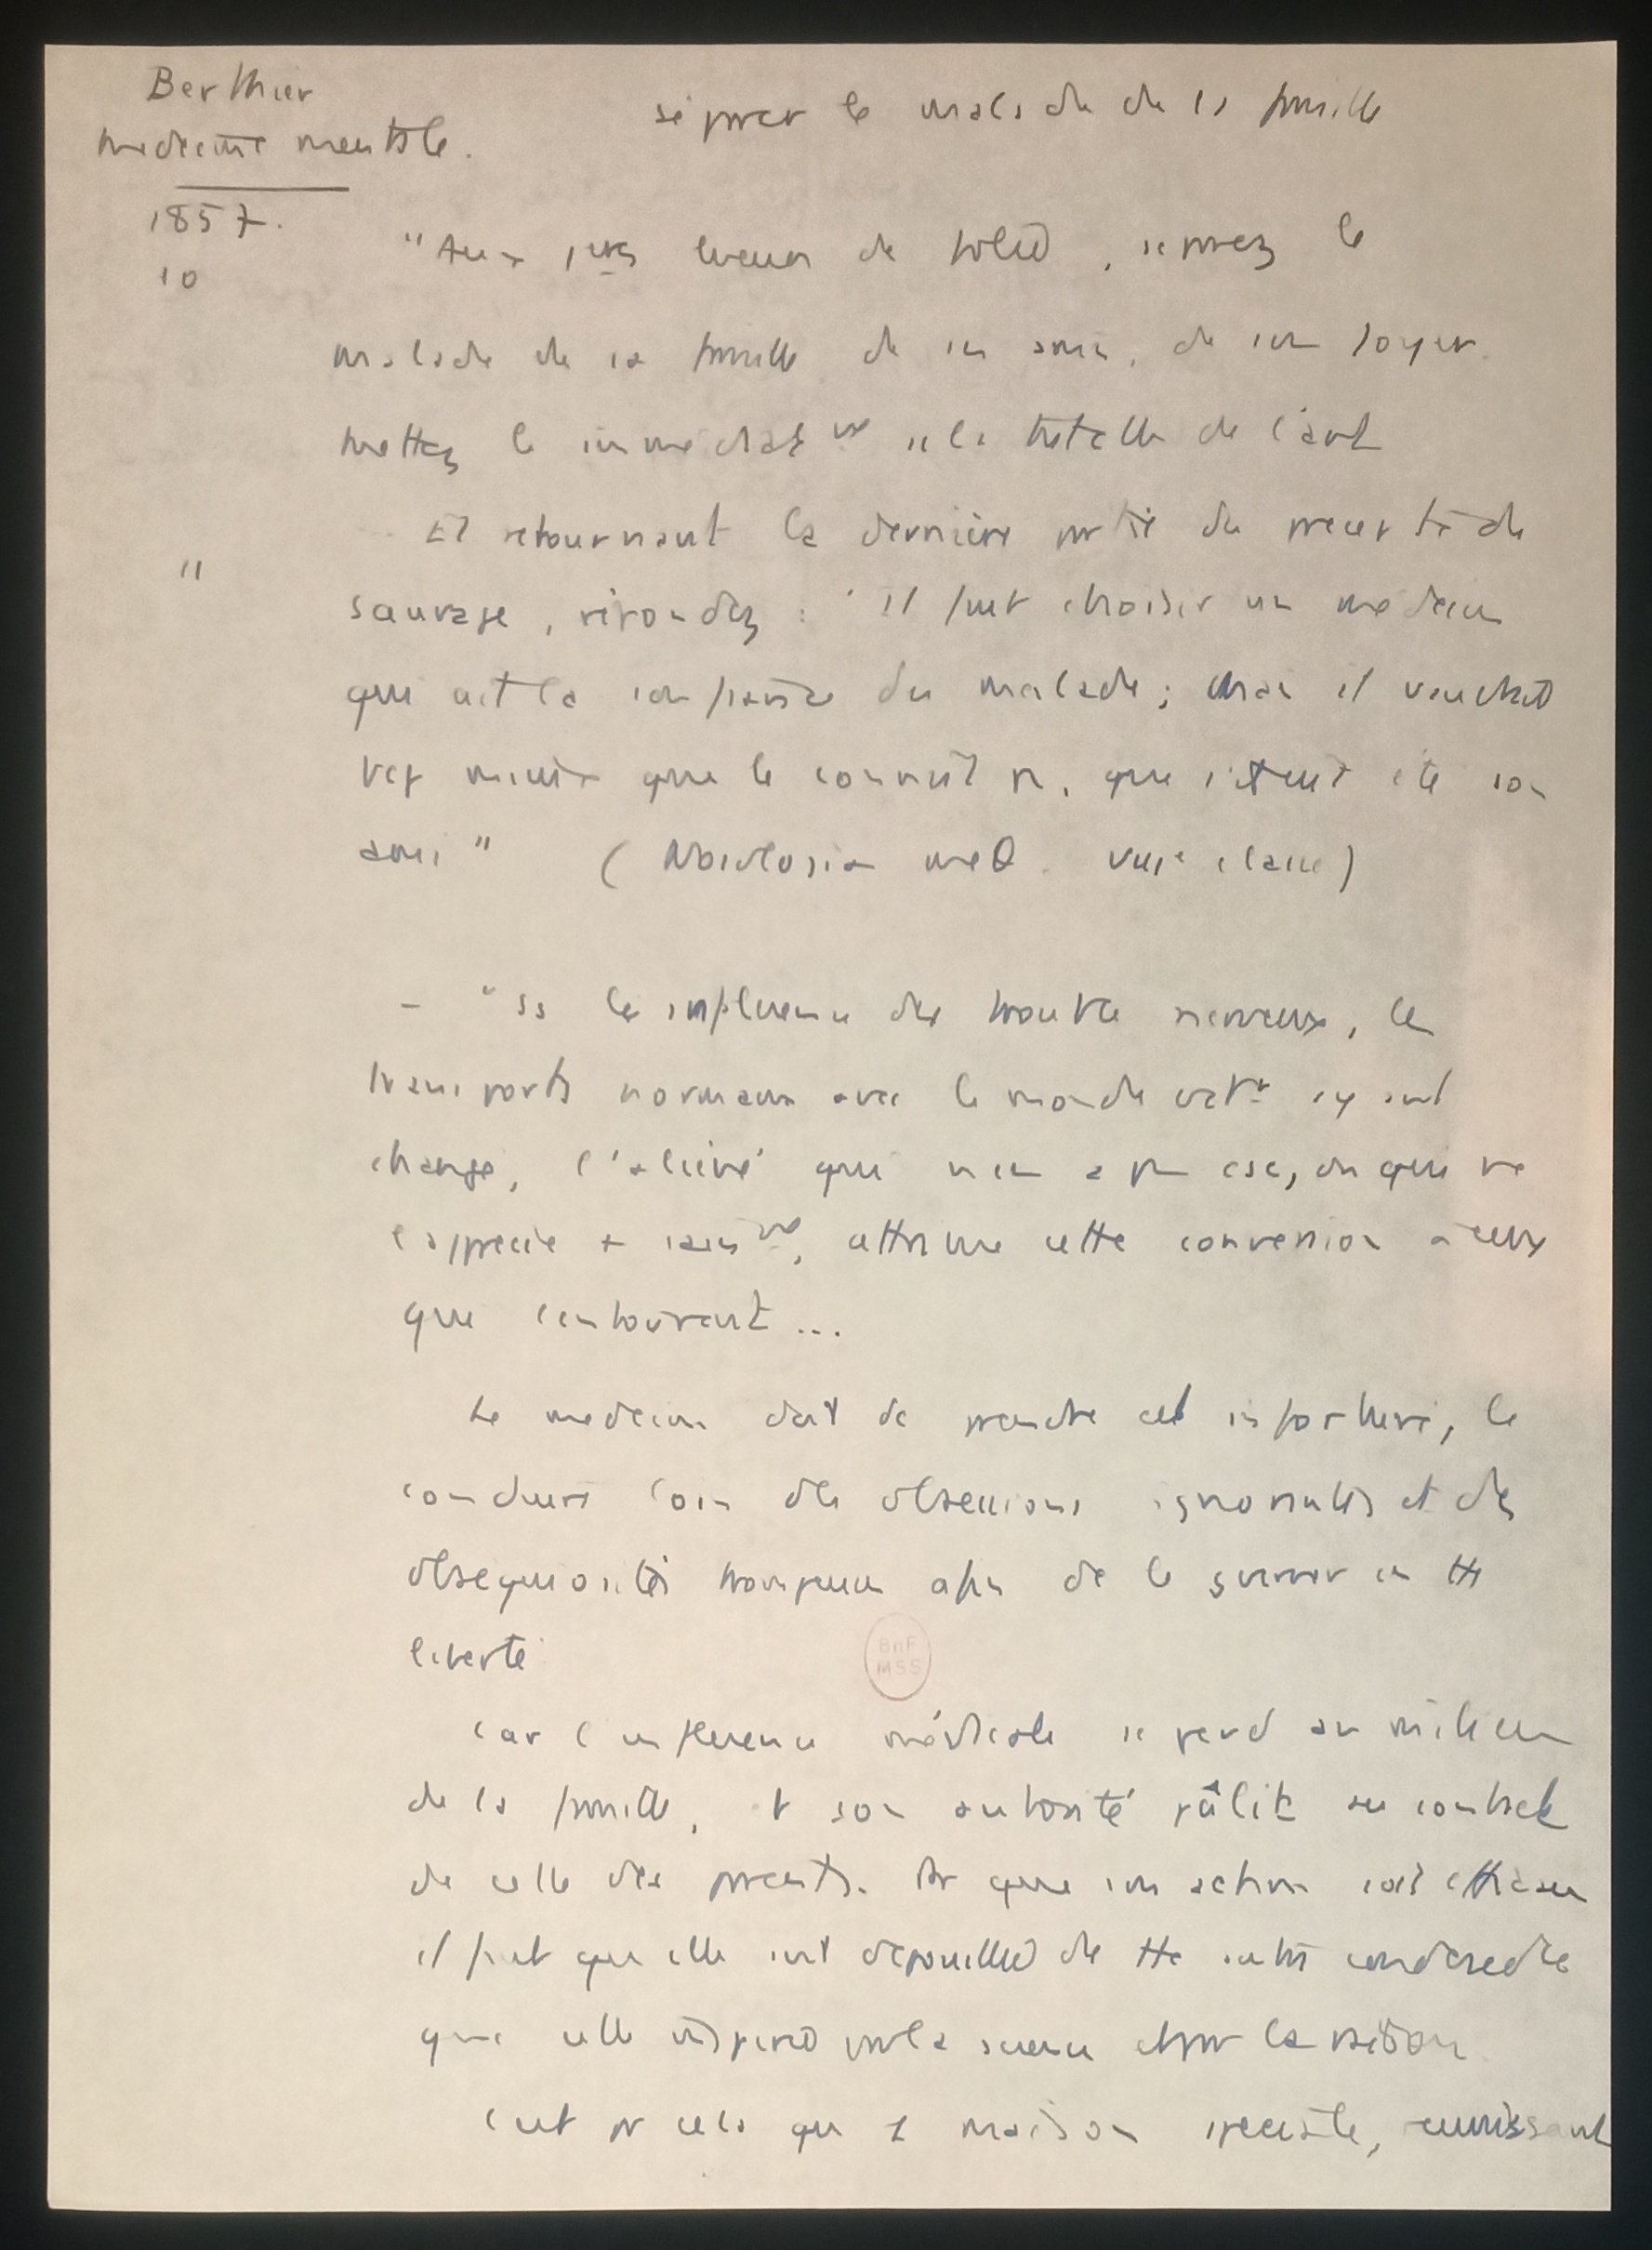 Berthier
médecine mentale.
1857.
10
séparer le malade de la famille
"Aux 1res lueurs de folie, séparez le
malade de sa famille de ses amis, de son foyer.
Mettez le immédiatt ss la tutelle de l'art
Et retournant la dernière partie du précepte de
"
Sauvage, répondez : "il faut choisir un médecin
qui ait la confiance du malade ; mais il vaudrait
bcp mieux que le connût pas, que d'avoir été son
ami" (Nosologia med. classe)
- "ss les influences des troubles nerveux, les
rapports normaux avec le monde ext. ayant
changé, l'aliéné qui n'en a pas csc, ou qui ne
l'apprécie + sainemt, attribue cette conversion à ceux
qui l'entourent...
Le médecin doit dc prendre cet infortuné, le
conduire loin des obsessions et des
obséquiosités trompeuses afin de le gouverner en tte
liberté
Car l'influence médicale se perd au milieu
de la famille, et son autorité pâlit au contact
de celle des parents. Pr que son action soit efficace
il faut qu'elle soit dépouillée de tte autre considération
que celle inspirée par la science et par la raison.
C'est pr cela qu'1 maison spéciale, réunissant